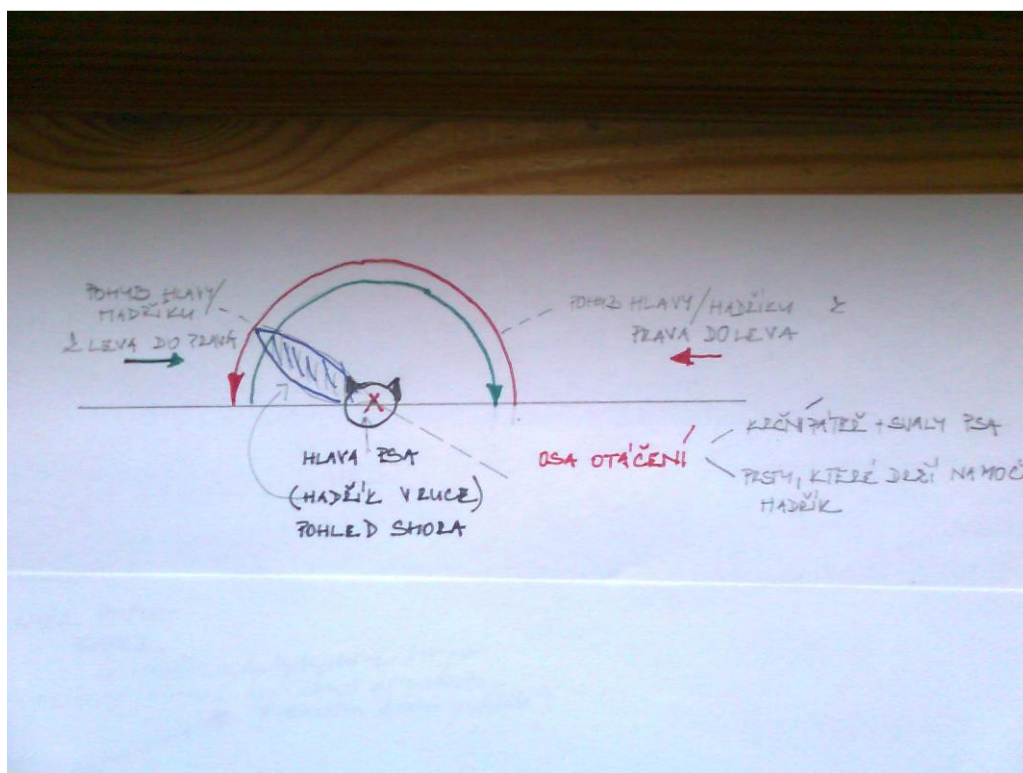 POHYB HLAVY/
HADŘÍKU
Z LEVA DO PRAVA
POHYB HLAVY/HADŘÍKU Z
PRAVA DOLEVA
HLAVA PSA
(HADŘÍK V RUCE)
POHLED SHORA
OSA OTÁČENÍ
KRČNÍ PÁTEŘ + SVALY PSA
PRSTY, KTERÉ DRŽÍ NAMOČ
HADŘÍK